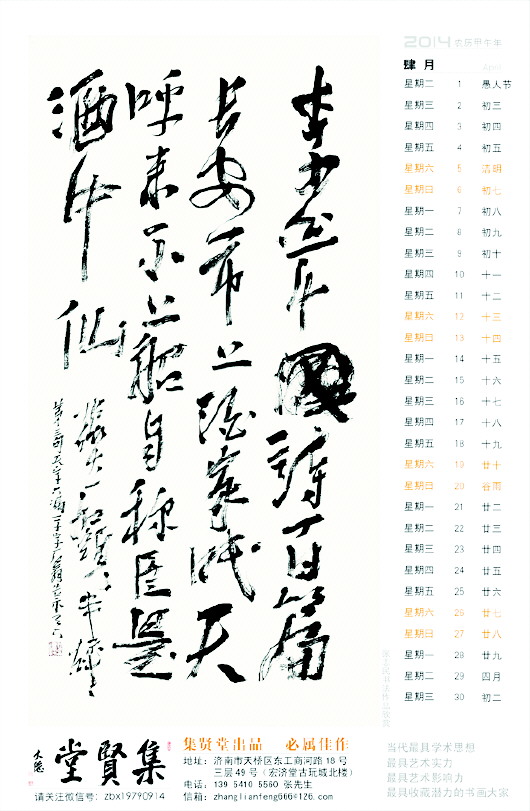 李白斗詩百篇
長安市上酒家眠天
呼来不上船自称臣是
酒中仙
2014 农历甲午年
肆月 April
星期二 1 愚人节
星期三 2 初三
星期四 3 初四
星期五 4 初五
星期六 5 清明
星期日 6 初七
星期一 7 初八
星期二 8 初九
星期三 9 初十
星期四 10 十一
星期五 11 十二
星期六 12 十三
星期日 13 十四
星期一 14 十五
星期二 15 十六
星期三 16 十七
星期四 17 十八
星期五 18 十九
星期六 19 廿十
星期日 20 谷雨
星期一 21 廿二
星期二 22 廿三
星期三 23 廿四
星期四 24 廿五
星期五 25 廿六
星期六 26 廿七
星期日 27 廿八
星期一 28 廿九
星期二 29 四月
星期三 30 初二
集賢堂
请关注微信号：zbx19790914
集贤堂出品 必属佳作
地址：济南市天桥区东工商河路18号
三层49号（宏济堂古玩城北楼）
电话：139 5410 5560 张先生
信箱：zhanglianfeng666@126.com
当代最具学术思想
最具艺术实力
最具艺术影响力
最具收藏潜力的书画大家